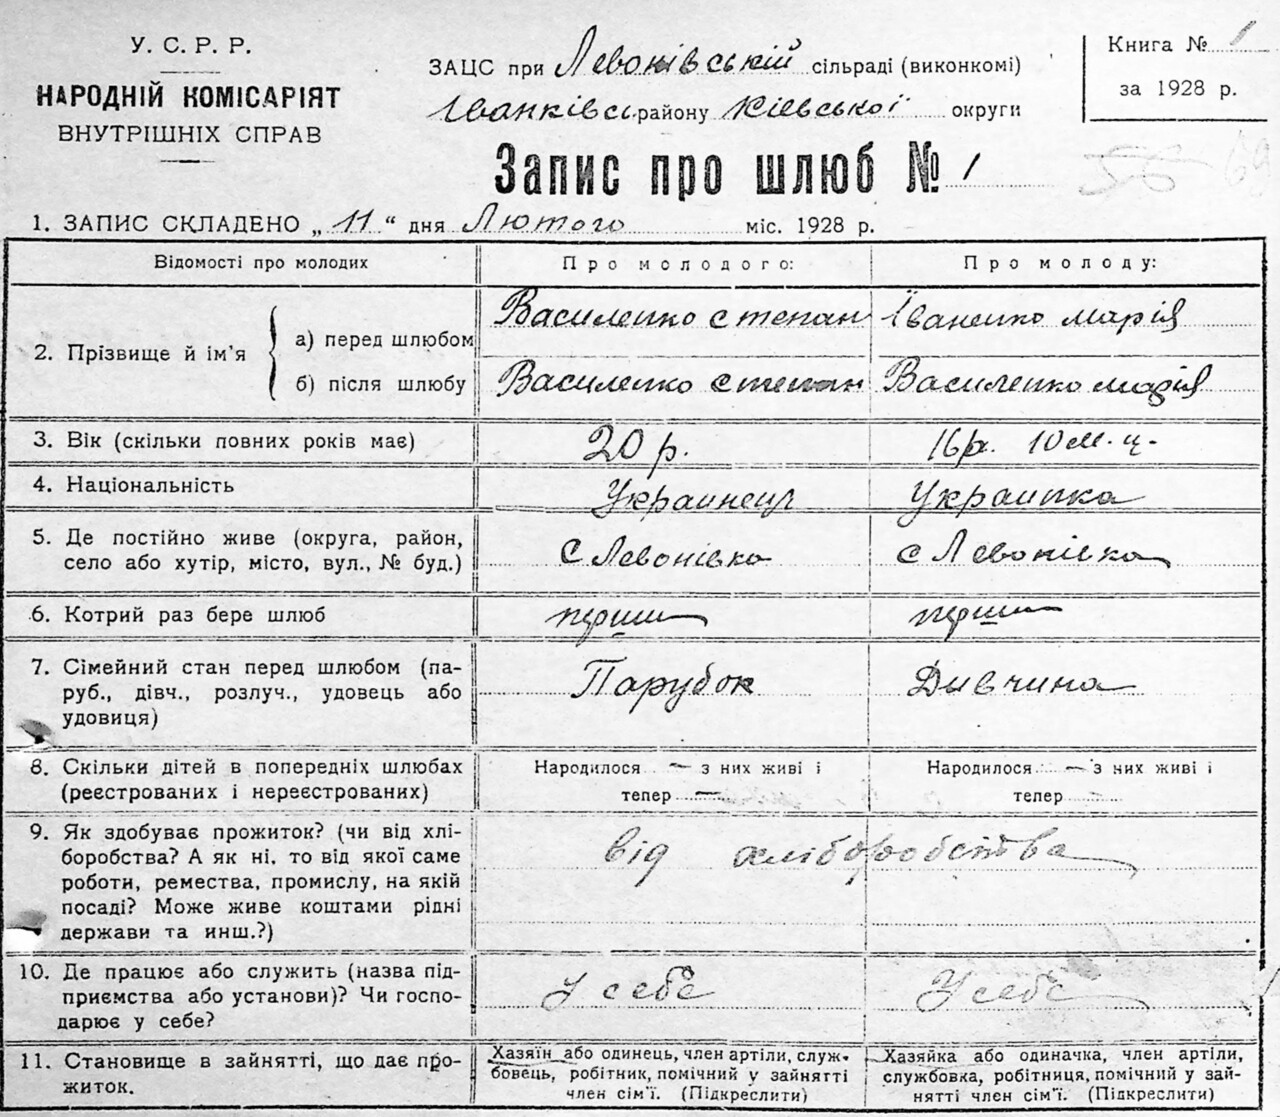 У. С. Р. Р.
НАРОДНІЙ КОМІСАРІЯТ
ВНУТРІШНІХ СПРАВ
ЗАЦС при Левонівській сільраді (виконкомі)
Іванківсь району Кіевської округи
Книга № 1
за 1928 р.
Запис про шлюб № 1
56 69
1. ЗАПИС СКЛАДЕНО „ 11 “ дня Лютого міс. 1928 р.
Відомості про молодих Про молодого: Про молоду:
2. Прізвище й ім'я
а) перед шлюбом Василенко степан Іваненко марія
б) після шлюбу Василенко степан Василенко марія
3. Вік (скільки повних років має) 20 р. 16 р. 10 м-ц.
4. Національність Украинец Украинка
5. Де постійно живе (округа, район,
село або хутір, місто, вул., № буд.) с Левонівка с Левонівка
6. Котрий раз бере шлюб перши перши
7. Сімейний стан перед шлюбом (па-
руб., дівч., розлуч., удовець або
удовиця) Парубок Дивчина
8. Скільки дітей в попередніх шлюбах
(реєстрованих і нереєстрованих)
Народилося — з них живі і
тепер —
Народилося — з них живі і
тепер
9. Як здобуває прожиток? (чи від хлі-
боробства? А як ні, то від якої саме
роботи, ремества, промислу, на якій
посаді? Може живе коштами рідні
держави та инш.?)
від хліборобства
10. Де працює або служить (назва під-
приємства або установи)? Чи госпо-
дарює у себе?
у себе У себе
11. Становище в зайнятті, що дає про-
житок.
Хазяїн або одинець, член артіли, служ-
бовець, робітник, помічний у зайнятті
член сім'ї. (Підкреслити)
Хазяйка або одиначка, член артіли,
службовка, робітниця, помічний у зай-
нятті член сім'ї. (Підкреслити)